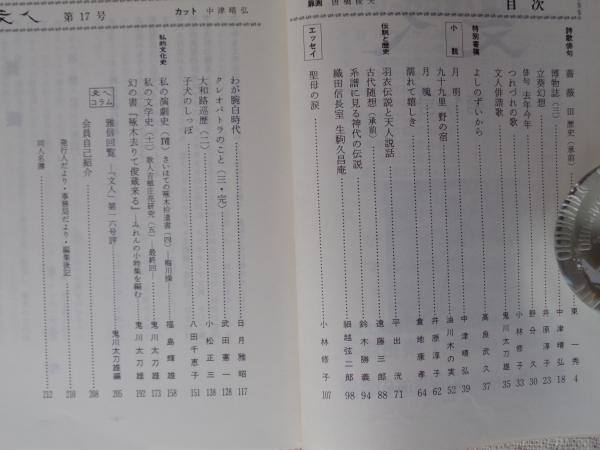 目次
詩歌俳句
薔薇田歴史(承前) 東一秀 4
博物誌(三) 中津晴弘 18
立葵幻想 井原淳子 23
俳句 去年今年 野分久 30
つれづれの歌 小林修子 33
文人俳諧歌 鬼川太刀雄 35
特別寄稿
よしのずいから 高良武久 37
小説
月明 中津晴弘 39
九十九里 野の宿 油川木の実 52
月魄 井原淳子 62
濡れて嬉しき 倉地康孝 64
伝説と歴史
羽衣伝説と天人説話 平出洸 71
古代随想(承前) 遠藤三郎 88
系譜に見る神代の伝説 鈴木勝義 94
織田信長室 生駒久昌庵 細越弦二郎 98
エッセイ
聖母の涙 小林修子 107
文人 第17号
カット 中津晴弘
わが腕白時代 日月雅昭 117
クレオパトラのこと(三・完) 武田憲一 128
大和路巡歴(二) 小松正三 138
子犬のしっぽ 八田千恵子 151
私的文化史
私の演劇史 さいはての啄木拾遺書(四)―梅川操 福島輝雄 158
私の文学史(十二) 歌人吉植庄亮研究(五)―最終回― 鬼川太刀雄 173
幻の書『啄木去りて俊蔵来る』―みれんの小特集を編む 鬼川太刀雄 192
文人コラム
雅信回覧―『文人』第一六号評 鬼川太刀雄編 205
会員自己紹介 208
発行人だより・事務局だより・編集後記 210
同人名簿 212